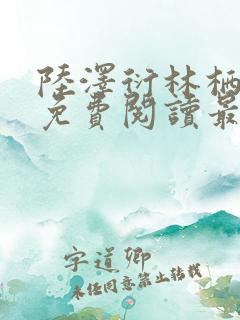 陸澤衍林栖
免費閱讀最
字道卿
未任同意禁止轉載